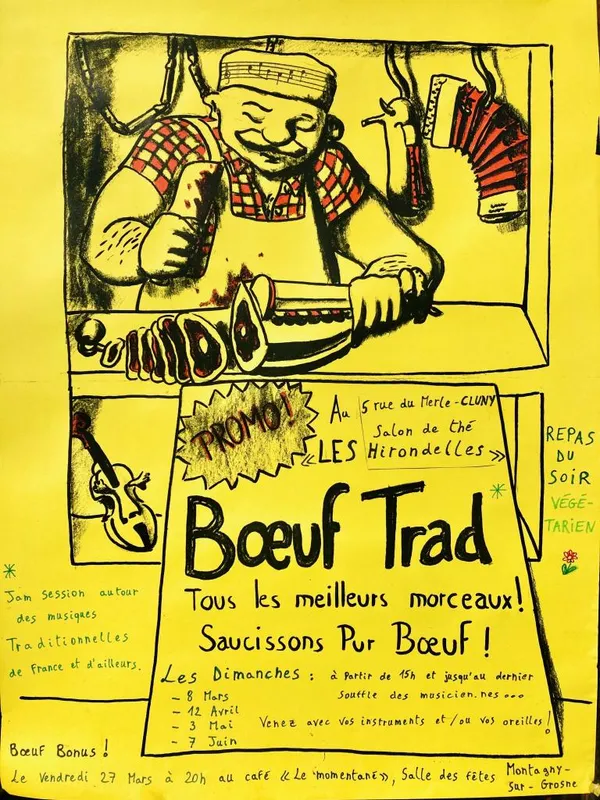 PROMO!
Au 5 rue du Merle - CLUNY
Salon de thé
«LES Hirondelles»
REPAS
DU
SOIR
VÉGÉ-
TARIEN
Bœuf Trad*
Tous les meilleurs morceaux!
Saucissons Pur Bœuf!
Les Dimanches : à partir de 15h et jusqu'au dernier
souffle des musicien.nes...
- 8 Mars
- 12 Avril
- 3 Mai
- 7 Juin
Venez avec vos instruments et/ou vos oreilles!
*
Jam session autour
des musiques
Traditionnelles
de France et d'ailleurs.
Bœuf Bonus!
Le Vendredi 27 Mars à 20h au café «Le momentané», Salle des fêtes Montagny-
sur-Grosne